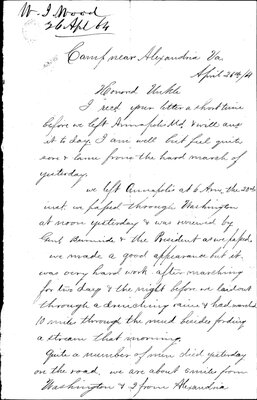 W. J. Wood
26 Apl 64
Camp near Alexandria Va.
April 26th/64
Honord Unkle
I recd your letter a short time
before we left Annapolis Md. & will ans
it to day. I am well but feel quite
sore & lame from the hard march of
yesterday.
we left Annapolis at 6 A.m. the
inst. we passed through Washington
at noon yesterday & was reviewed by
Genl. Burnside & the President as we passed.
we made a good appearance but it
was very hard work after marching
for two days & the night before we laid out
through a drenching rain & had marched
10 miles through the mud besides fording
a stream that morning.
Quite a number of men died yesterday
on the road. we are about 6 miles from
Washington & 2 from Alexandria